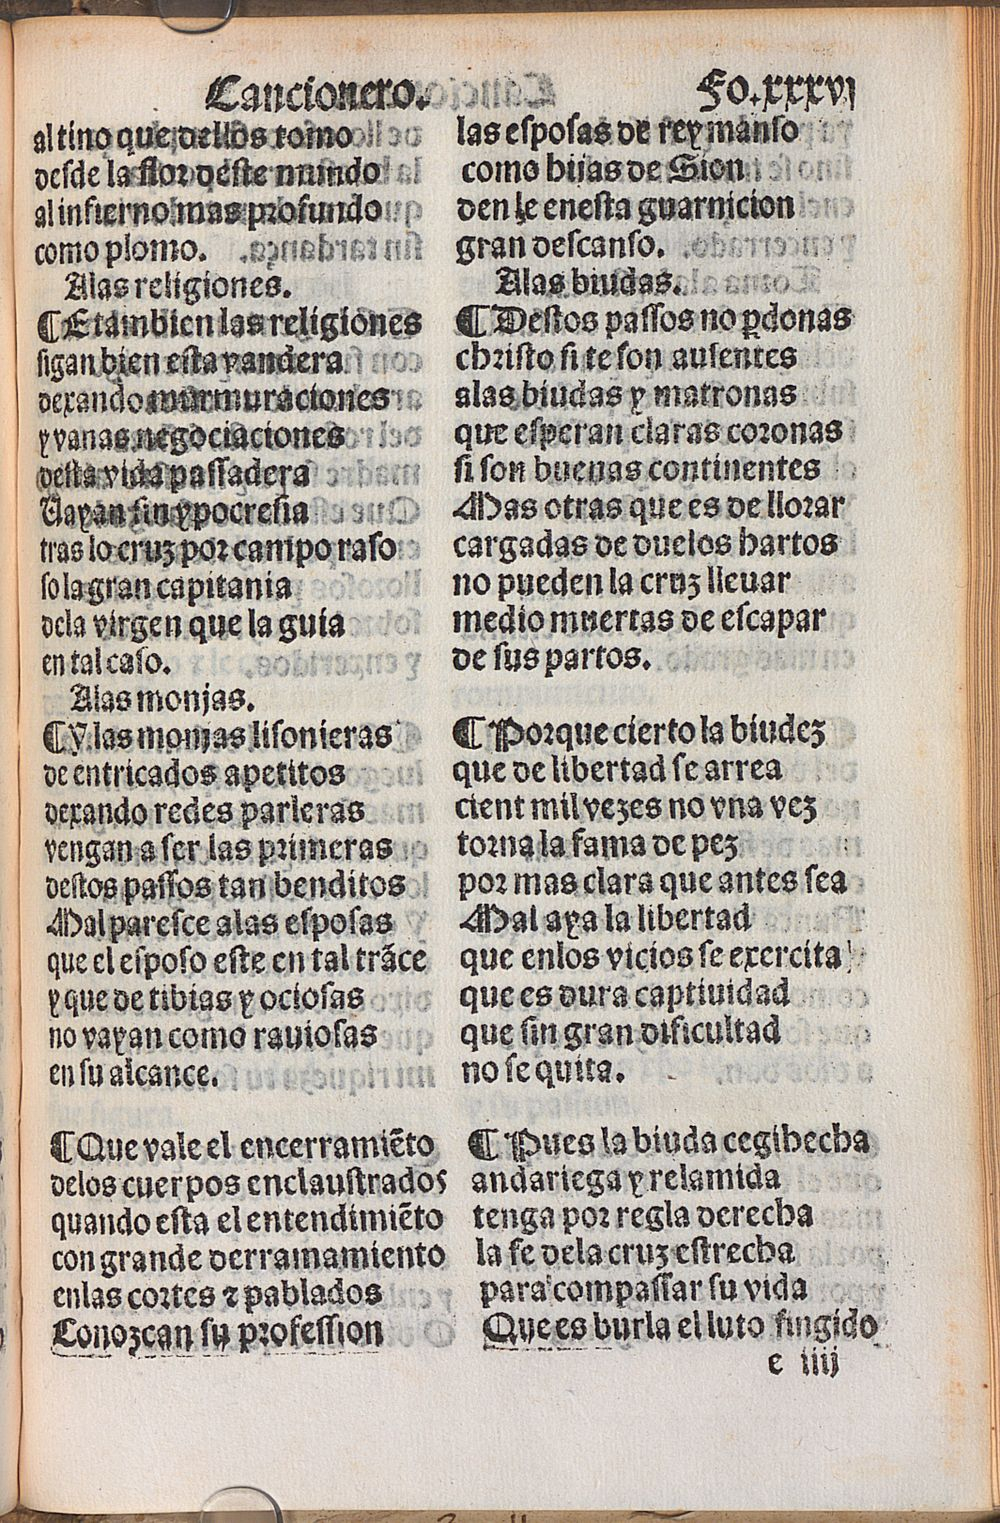 Cancionero. Fo.xxxvj
al tino que dellos tomo
desde la flor deste mundo
al infierno mas profundo
como plomo.
Alas religiones.
¶ E tambien las religiones
sigan bien esta vandera
dexando murmuraciones
y vanas negociaciones
desta vida passadera
Uayan sin ypocresia
tras lo cruz por campo raso
so la gran capitania
dela virgen que la guia
en tal caso.
Alas monjas.
¶ Y las monjas lisonieras
de entricados apetitos
dexando redes parleras
vengan a ser las primeras
destos passos tan benditos
Mal paresce alas esposas
que el esposo este en tal trãce
y que de tibias y ociosas
no vayan como rauiosas
en su alcance.
¶ Que vale el encerramiẽto
delos cuerpos enclaustrados
quando esta el entendimiẽto
con grande derramamiento
enlas cortes ⁊ pablados
Conozcan su profession
las esposas de rey manso
como hijas de Sion
den le enesta guarnicion
gran descanso.
Alas biudas.
¶ Destos passos no ꝑdonas
christo si te son ausentes
alas biudas y matronas
que esperan claras coronas
si son buenas continentes
Mas otras que es de llorar
cargadas de duelos hartos
no pueden la cruz lleuar
medio muertas de escapar
de sus partos.
¶ Porque cierto la biudez
que de libertad se arrea
cient mil vezes no vna vez
torna la fama de pez
por mas clara que antes sea
Mal aya la libertad
que enlos vicios se exercita
que es dura captiuidad
que sin gran dificultad
no se quita.
¶ Pues la biuda cegihecha
andariega y relamida
tenga por regla derecha
la fe dela cruz estrecha
para compassar su vida
Que es burla el luto fingido
e iiij